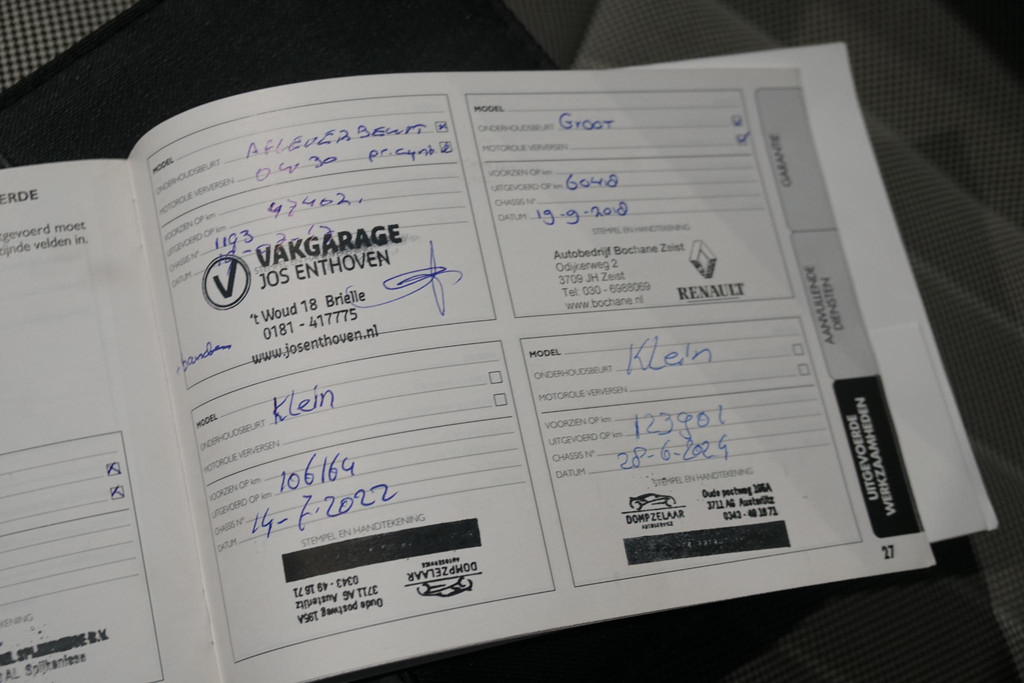 ERDE
tgevoerd moet
zijnde velden in.
KENING
AL Spijkenisse
MODEL
ONDERHOUDSBEURT AFLEVERBEURT
MOTOROLIE VERVERSEN 0W30
VOORZIEN OP km
UITGEVOERD OP km 47402.
CHASSIS N° 1193
DATUM
VAKGARAGE
JOS ENTHOVEN
't Woud 18 Brielle
0181 - 417775
www.josenthoven.nl
banden
MODEL
ONDERHOUDSBEURT GROOT
MOTOROLIE VERVERSEN
VOORZIEN OP km
UITGEVOERD OP km
CHASSIS N°
DATUM 19-9-2018
STEMPEL EN HANDTEKENING
Autobedrijf Bochane Zeist
Odijkerweg 2
3709 JH Zeist
Tel: 030 - 6988069
www.bochane.nl
RENAULT
MODEL
ONDERHOUDSBEURT Klein
MOTOROLIE VERVERSEN
VOORZIEN OP km
UITGEVOERD OP km 106164
CHASSIS N°
DATUM 14-7-2022
STEMPEL EN HANDTEKENING
DOMPZELAAR
AUTOSERVICE
Oude postweg 195A
3711 AG Austerlitz
0343 - 49 18 71
MODEL
ONDERHOUDSBEURT Klein
MOTOROLIE VERVERSEN
VOORZIEN OP km
UITGEVOERD OP km 123901
CHASSIS N°
DATUM 28-6-2024
STEMPEL EN HANDTEKENING
DOMPZELAAR
AUTOSERVICE
Oude postweg 195A
3711 AG Austerlitz
0343 - 49 18 71
GARANTIE
AANVULLENDE
DIENSTEN
UITGEVOERDE
WERKZAAMHEDEN
27